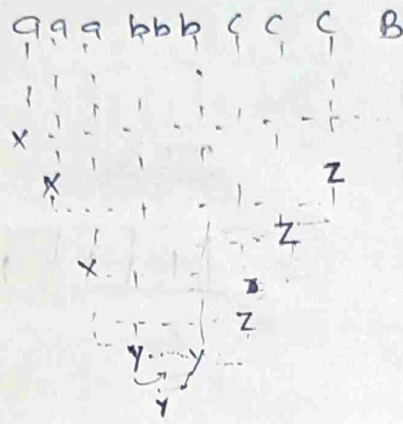 a a a b b b c c c B
X
Z
X
Z
X
Z
Y Y
Y